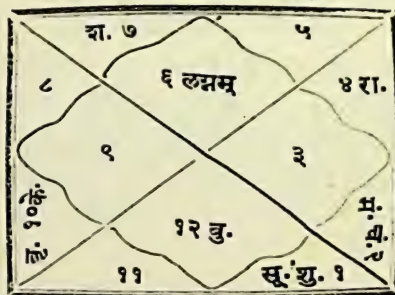 श. ७
५
८
६ लग्नम्
४ रा.
९
३
बृ. १०के.
१२ बु.
मं. चं. २
११
सू. शु. १